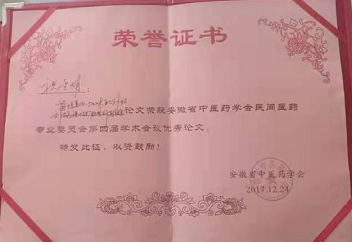 荣誉证书
论文荣获安徽省中医药学会民间医药
专业委员会第四届学术会议优秀论文,
特发此证,以资鼓励!
安徽省中医药学会
2017.12.24